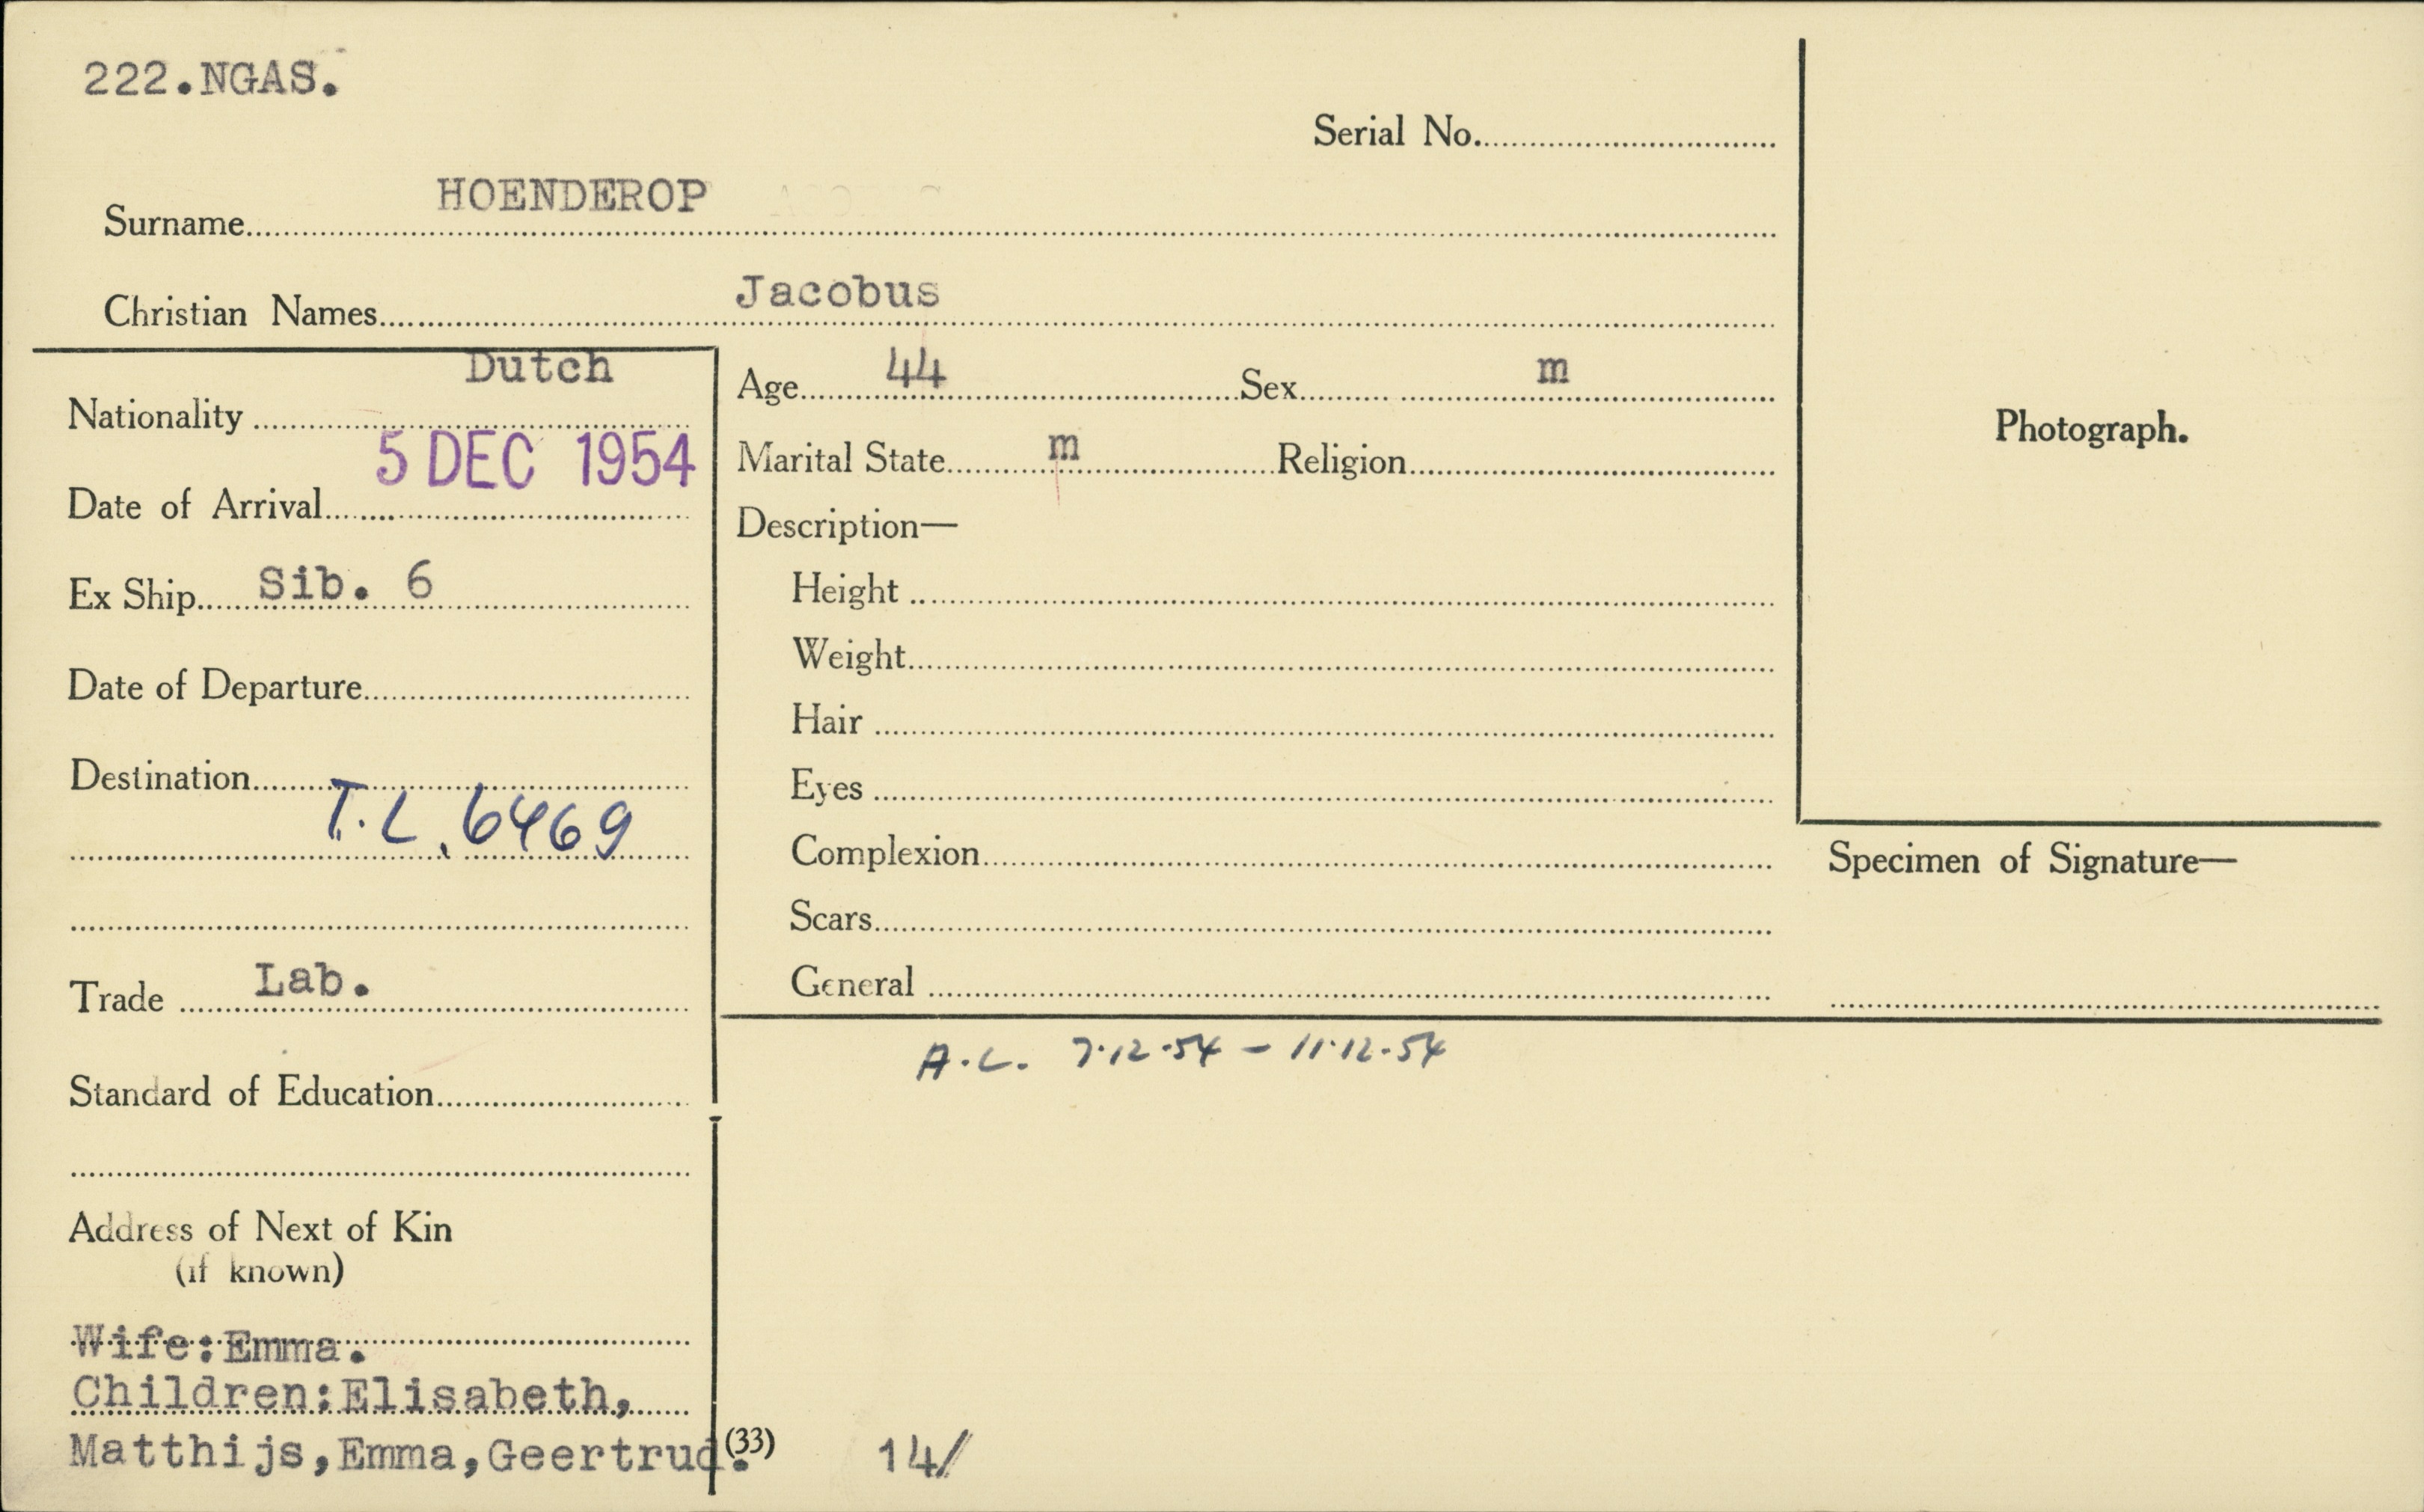 222.NGAS.
Serial No.
HOENDEROP
Surname
Jacobus
Christian Names
Dutch
Nationality
5 DEC 1954
Date of Arrival
Ex Ship Sib. 6
Date of Departure
Destination
T.L. 6469
Trade Lab.
Standard of Education
Address of Next of Kin
(if known)
Wife:Emma.
Children:Elisabeth,
Matthijs,Emma,Geertrud.
Age 44 Sex m
Marital State m Religion
Description—
Height
Weight
Hair
Eyes
Complexion
Scars
General
A.L. 7.12.54 – 11.12.54
(33)
14/
Photograph.
Specimen of Signature—